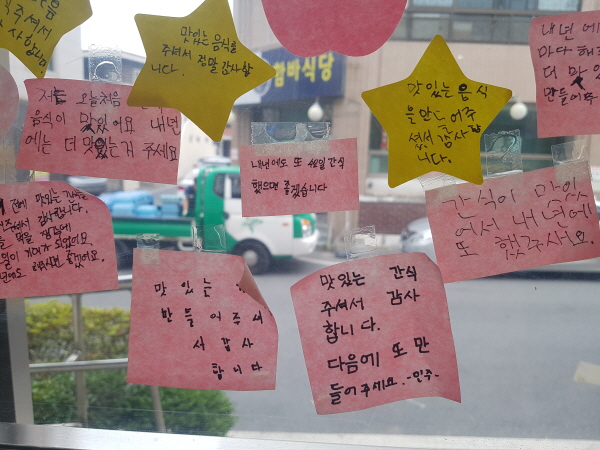 주셔서
감사합니다.
맛있는 음식을
주셔서 정말 감사합
니다.
함바식당
맛있는 음식
을 만들어주
셔서 감사합
니다.
내년에
마다 해
더 맛있
만들어주
저는 오늘처음
음식이 맛있어요 내년
에는 더 맛있는거 주세요
내년에도 또 생일 간식
했으면 좋겠습니다
간식이 맛있
어서 내년에
또 했주사요.
맛있는 간식을
주셔서 감사합니다.
되었어요.
좋겠어요.
맛있는
만들어주셔
서 감사
합니다
맛있는 간식
주셔서 감사
합니다.
다음에 또 만
들어주세요. -민주-